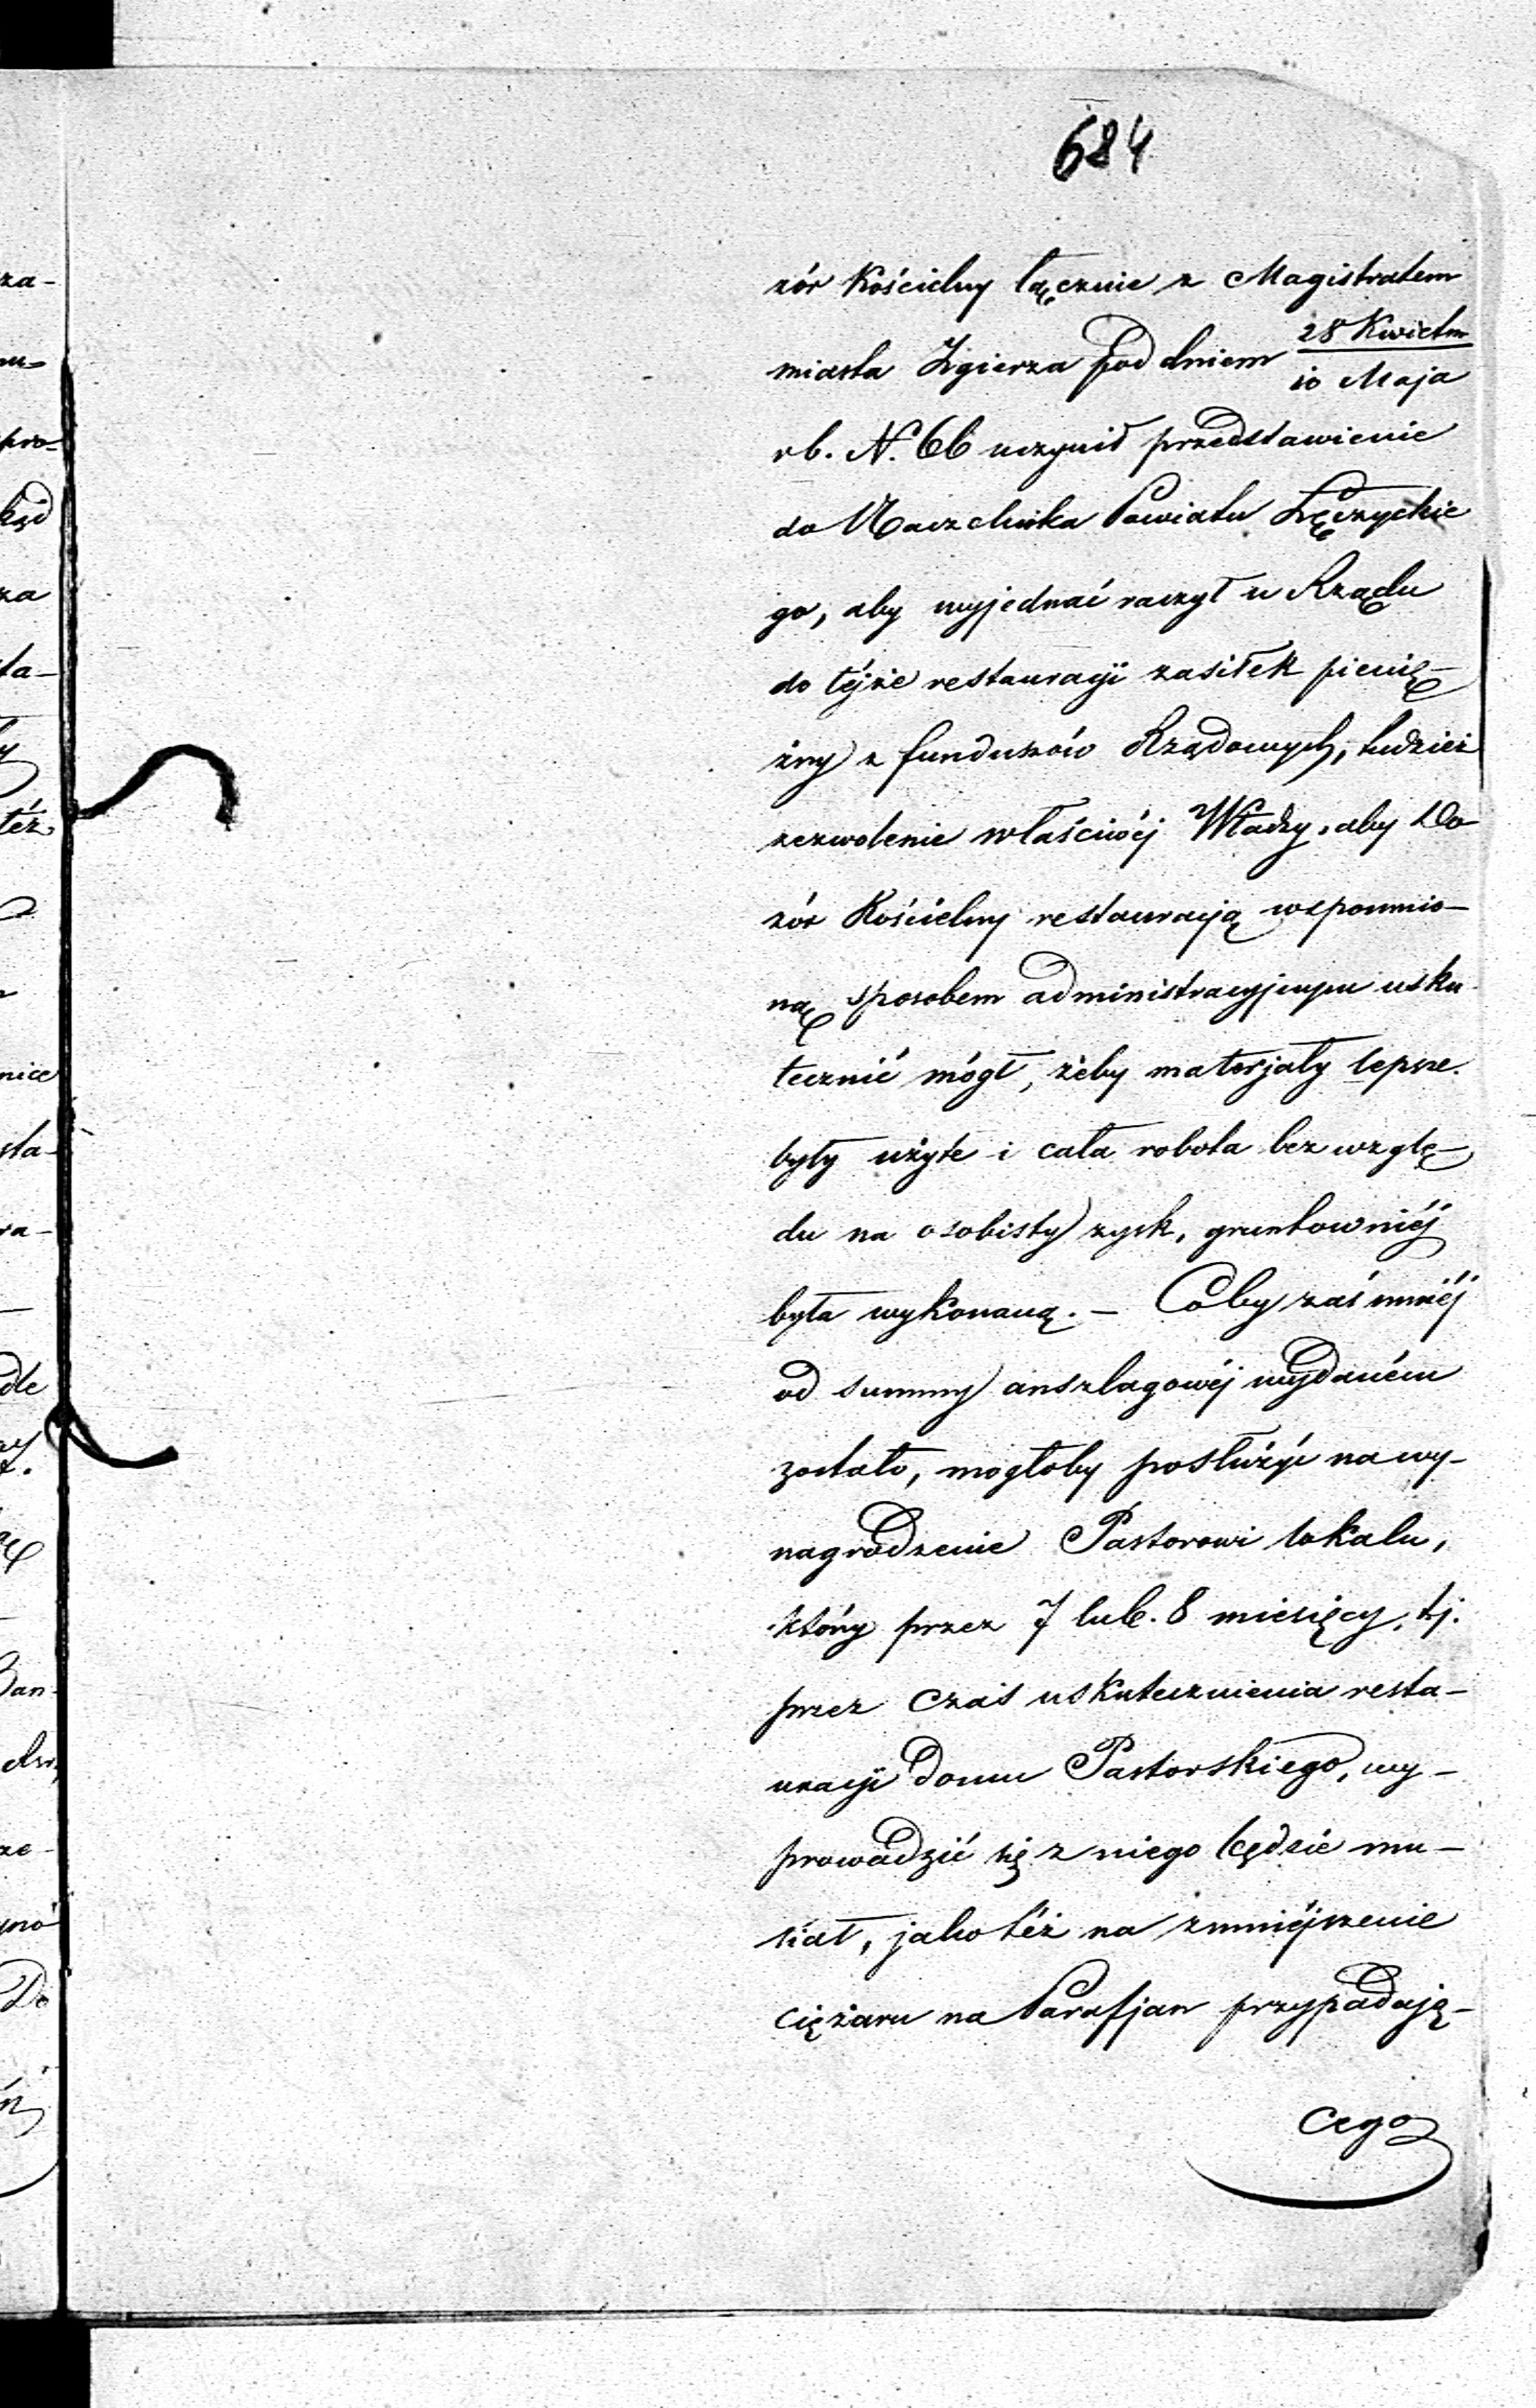 684
zór Kościelny łącznie z Magistratem
miasta Zgierza pod dniem 28 Kwietn / 10 Maja
rb. N. 66 uczynił przedstawienie
do Naczelnika Powiatu Łęczyckie
go, aby wyjednać raczył u Rządu
do téjże restauracji zasiłek pienię-
żny z funduszów Rządowych, tudzież
zezwolenie właściwéj Władzy, aby Do
zór Kościelny restauracją wspomnio-
ną sposobem administracyjnym usku
tecznić mógł, żeby materjały lepsze
były użyte i cała robota bez wzglę-
du na osobisty zysk, gruntowniéj
była wykonaną. — Coby zaś mniéj
od summy anszlagowéj wydaném
zostało, mogłoby posłużyć na wy-
nagrodzenie Pastorowi lokalu,
który przez 7 lub. 8 miesięcy, tj.
przez czas uskutecznienia resta-
uracji domu Pastorskiego, wy-
prowadzić się z niego będzie mu-
siał, jako téż na zmniéjszenie
ciężaru na Parafjan przypadają-
cego
za-
pro-
kąd
za
ta-
téż
nice
sta-
ra-
dle
Ban-
ze-
Do